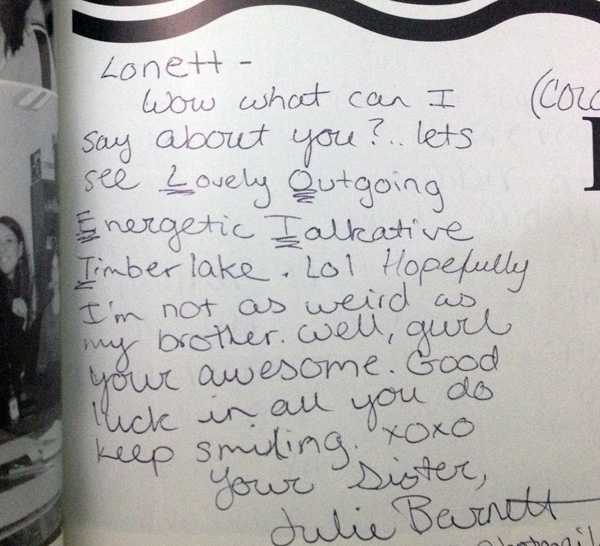 Lonett -
Wow what can I
say about you?.. lets
see Lovely Outgoing
Energetic Talkative
Timberlake. Lol Hopefully
I'm not as weird as
my brother. Well, gurl
your awesome. Good
luck in all you do
keep smiling. xoxo
Your Sister,
Julie Barnett